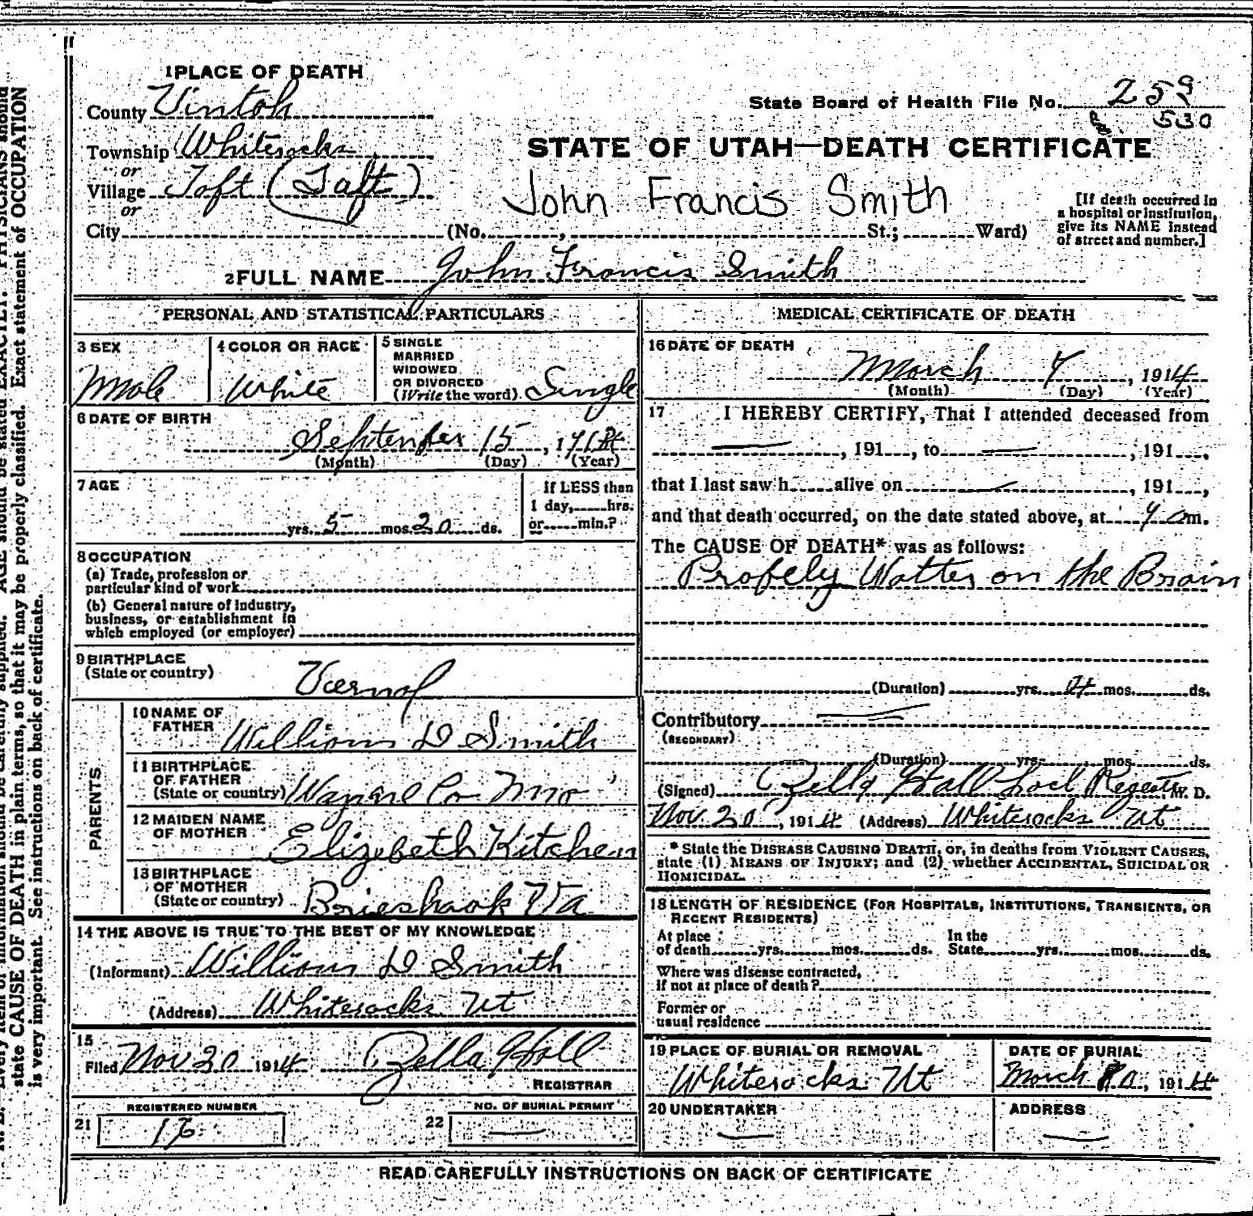 1 PLACE OF DEATH
County Uintah
State Board of Health File No. 259
530
Township Whiterocks
STATE OF UTAH—DEATH CERTIFICATE
or
Village Toft (Taft)
John Francis Smith
or
City (No. , St.; Ward)
[If death occurred in
a hospital or institution,
give its NAME instead
of street and number.]
2 FULL NAME John Francis Smith
PERSONAL AND STATISTICAL PARTICULARS
3 SEX
Male
4 COLOR OR RACE
White
5 SINGLE
MARRIED
WIDOWED
OR DIVORCED
(Write the word) Single
6 DATE OF BIRTH
September 15, 191
(Month) (Day) (Year)
7 AGE
yrs. 5 mos. 20 ds.
If LESS than
1 day, hrs.
or min.?
8 OCCUPATION
(a) Trade, profession or
particular kind of work
(b) General nature of industry,
business, or establishment in
which employed (or employer)
9 BIRTHPLACE
(State or country) Vernol
PARENTS
10 NAME OF
FATHER William D Smith
11 BIRTHPLACE
OF FATHER
(State or country) Wayne Co Mo
12 MAIDEN NAME
OF MOTHER
Elizebeth Kitchen
13 BIRTHPLACE
OF MOTHER
(State or country) Va
14 THE ABOVE IS TRUE TO THE BEST OF MY KNOWLEDGE
(Informant) William D Smith
(Address) Whiterocks Ut
15
Filed Nov 20 1914 Zella Hall
REGISTRAR
REGISTERED NUMBER
21
NO. OF BURIAL PERMIT
22
MEDICAL CERTIFICATE OF DEATH
16 DATE OF DEATH
March 7, 1914
(Month) (Day) (Year)
17 I HEREBY CERTIFY, That I attended deceased from
, 191 , to , 191 ,
that I last saw h alive on , 191 ,
and that death occurred, on the date stated above, at m.
The CAUSE OF DEATH* was as follows:
Probely Watter on the Brain
(Duration) yrs. mos. ds.
Contributory
(SECONDARY)
(Duration) yrs. mos. ds.
(Signed) Zella Hall Locl M. D.
Nov. 20, 1914 (Address) Whiterocks Ut
* State the DISEASE CAUSING DEATH, or, in deaths from VIOLENT CAUSES,
state (1) MEANS OF INJURY; and (2) whether ACCIDENTAL, SUICIDAL OR
HOMICIDAL.
18 LENGTH OF RESIDENCE (FOR HOSPITALS, INSTITUTIONS, TRANSIENTS, OR
RECENT RESIDENTS)
At place
of death yrs. mos. ds. In the
State yrs. mos. ds.
Where was disease contracted,
if not at place of death?
Former or
usual residence
19 PLACE OF BURIAL OR REMOVAL
Whiterocks Ut
DATE OF BURIAL
March, 1914
20 UNDERTAKER
ADDRESS
READ CAREFULLY INSTRUCTIONS ON BACK OF CERTIFICATE
state CAUSE OF DEATH in plain terms, so that it may be properly classified. Exact statement of OCCUPATION
is very important. See instructions on back of certificate.